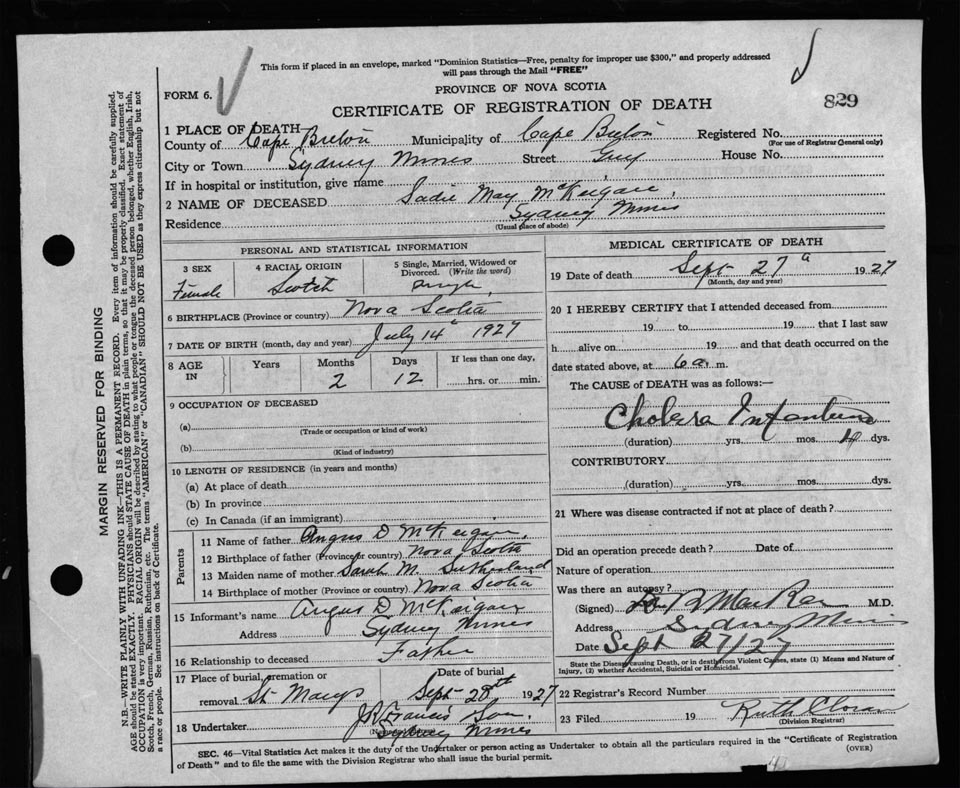 This form if placed in an envelope, marked "Dominion Statistics—Free, penalty for improper use $300," and properly addressed
will pass through the Mail "FREE"
FORM 6.
PROVINCE OF NOVA SCOTIA
829
CERTIFICATE OF REGISTRATION OF DEATH
1 PLACE OF DEATH
County of Cape Breton Municipality of Cape Breton Registered No.
(For use of Registrar General only)
City or Town Sydney Mines Street Guy House No.
If in hospital or institution, give name
2 NAME OF DECEASED Sadie May McKeigan,
Residence Sydney Mines
(Usual place of abode)
PERSONAL AND STATISTICAL INFORMATION
3 SEX 4 RACIAL ORIGIN 5 Single, Married, Widowed or
Divorced. (Write the word)
Female Scotch Single
6 BIRTHPLACE (Province or country) Nova Scotia
7 DATE OF BIRTH (month, day and year) July 14th 1927
8 AGE IN Years Months Days If less than one day,
2 12 hrs. or min.
9 OCCUPATION OF DECEASED
(a)
(Trade or occupation or kind of work)
(b)
(Kind of industry)
10 LENGTH OF RESIDENCE (in years and months)
(a) At place of death
(b) In province
(c) In Canada (if an immigrant)
Parents
11 Name of father Angus D McKeigan,
12 Birthplace of father (Province or country) Nova Scotia
13 Maiden name of mother Sarah M. Sutherland
14 Birthplace of mother (Province or country) Nova Scotia
15 Informant's name Angus D McKeigan
Address Sydney Mines
16 Relationship to deceased Father
17 Place of burial, cremation or Date of burial
removal St Marys Sept 28th 1927
18 Undertaker J R Francis Son,
Sydney Mines
MEDICAL CERTIFICATE OF DEATH
19 Date of death Sept 27th 1927
(Month, day and year)
20 I HEREBY CERTIFY that I attended deceased from
19 to 19 that I last saw
h alive on 19 and that death occurred on the
date stated above, at 6 a. m.
The CAUSE of DEATH was as follows:—
Cholera Infantum
(duration) yrs. mos. dys.
CONTRIBUTORY
(duration) yrs. mos. dys.
21 Where was disease contracted if not at place of death?
Did an operation precede death? Date of
Nature of operation
Was there an autopsy?
(Signed) M.D.
Address Sydney Mines
Date Sept 27/27
State the Disease causing Death, or in death from Violent Causes, state (1) Means and Nature of
Injury, (2) whether Accidental, Suicidal or Homicidal.
22 Registrar's Record Number
23 Filed 19 Ruth Cloran
(Division Registrar)
SEC. 46—Vital Statistics Act makes it the duty of the Undertaker or person acting as Undertaker to obtain all the particulars required in the "Certificate of Registration
of Death" and to file the same with the Division Registrar who shall issue the burial permit.
(OVER)
MARGIN RESERVED FOR BINDING
N.B.—WRITE PLAINLY WITH UNFADING INK—THIS IS A PERMANENT RECORD. Every item of information should be carefully supplied.
AGE should be stated EXACTLY. PHYSICIANS should STATE CAUSE OF DEATH in plain terms, so that it may be properly classified. Exact statement of
OCCUPATION is very important. RACIAL ORIGIN will be described by stating to what people or tongue the deceased person belonged, whether English, Irish,
Scotch, French, German, Russian, Ruthenian, etc. The terms "AMERICAN" or "CANADIAN" SHOULD NOT BE USED as they express citizenship but not
a race or people. See instructions on back of Certificate.